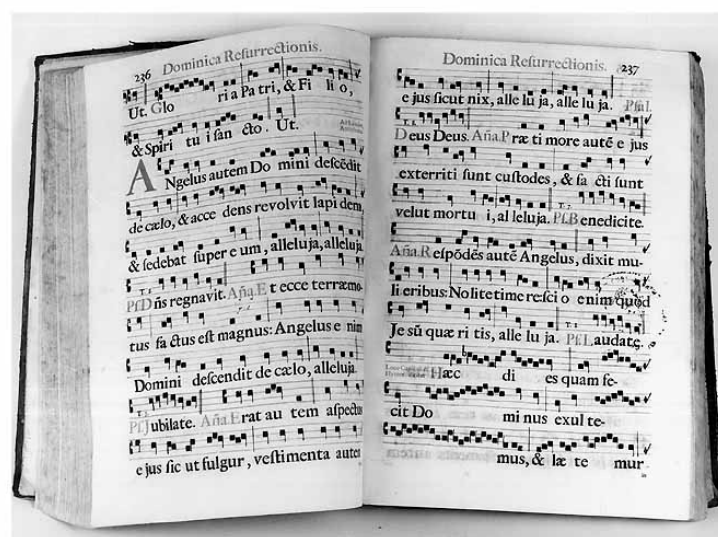 236
Dominica Resurrectionis.
Ut. Glo ri a Pa tri, & Fi li o,
& Spiri tu i san cto. Ut.
ANgelus autem Do mini descēdit
de cælo, & acce dens revolvit lapi dem,
& sedebat super e um, alleluja, alleluja.
Ps. Dñs regnavit. Aña. Et ecce terræmo-
tus fa ctus est magnus: Angelus e nim
Domini descendit de cælo, alleluja.
Ps. Jubilate. Aña. Erat au tem aspectus
e jus sic ut fulgur, vestimenta autem
Dominica Resurrectionis.
237
e jus sicut nix, alle lu ja, alle lu ja. Psal.
Deus Deus. Aña. Præ ti more autē e jus
exterriti sunt custodes, & fa cti sunt
velut mortu i, al leluja. Ps. Benedicite.
Aña. Respōdēs autē Angelus, dixit mu-
li eribus: No lite time re: sci o enim quod
Je sū quæ ri tis, alle lu ja. Ps. Laudate.
Hæc di es quam fe-
cit Do mi nus exul te-
mus, & læ te mur